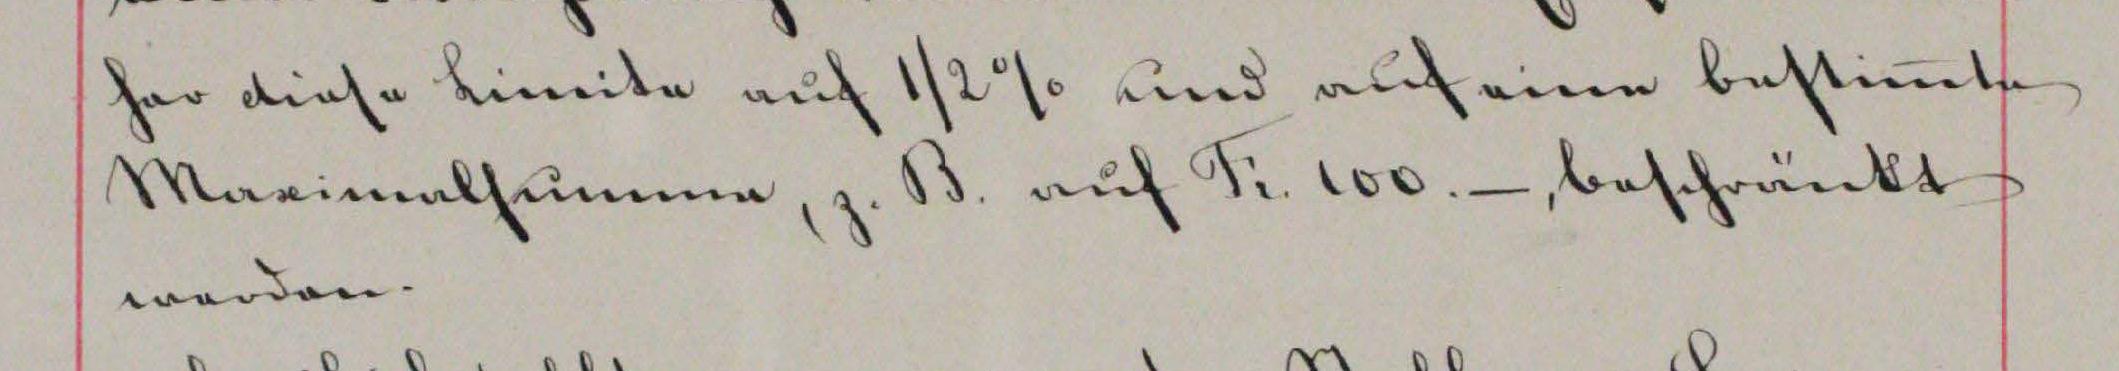 her diese Limite auf 1/2 % und auf eine bestim̄te
Maximalsumme, z. B. auf Fr. 100. –, beschränkt
werden.